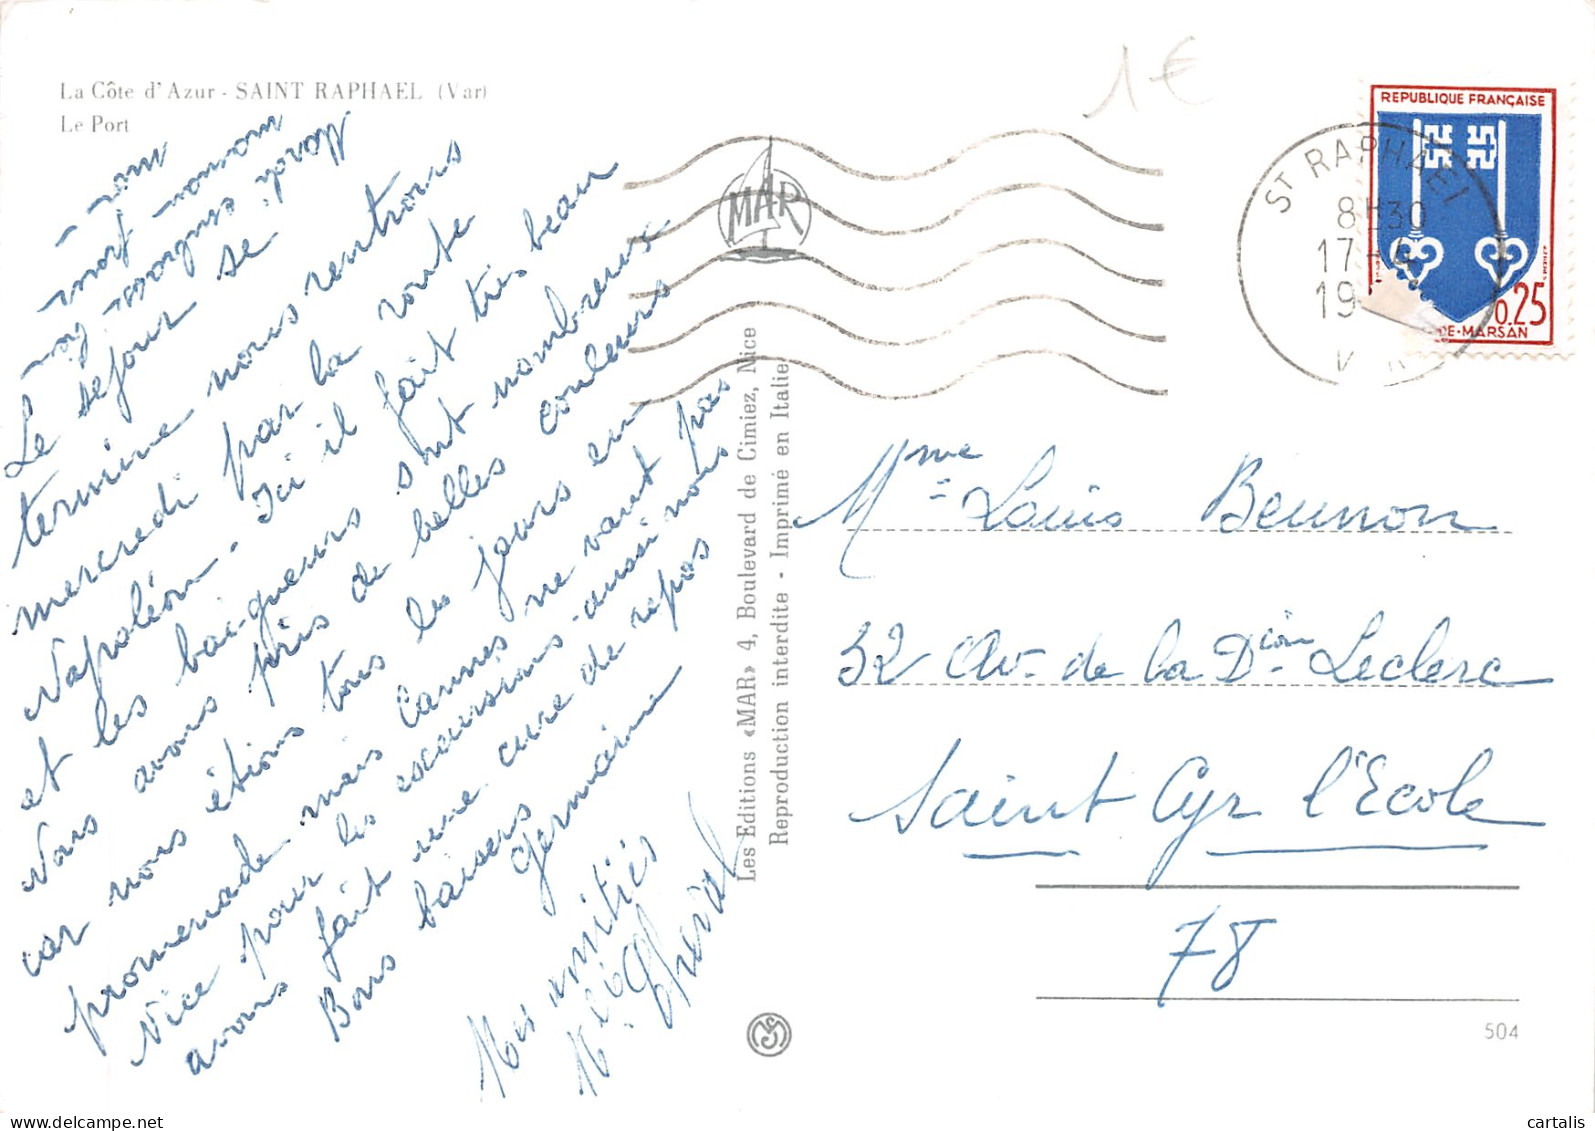 1€
La Côte d'Azur - SAINT RAPHAEL (Var)
Le Port
Le séjour se
termine nous rentrons
mercredi par la route
Napoléon - Ici il fait très beau
et les baigneurs sont nombreux
Nous avons pris de belles couleurs
car nous étions tous les jours en
promenade mais Cannes ne vaut pas
Nice pour les excursions - aussi nous
avons fait une cure de repos
Bons baisers
Germaine
Mes amitiés
Les Editions «MAR» 4, Boulevard de Cimiez, Nice
Reproduction interdite - Imprimé en Italie
MAR
ST RAPHAEL
8H30
17-
19
REPUBLIQUE FRANÇAISE
0,25
DE-MARSAN
Mme Louis Beunon
32 Av. de la Dion Leclerc
Saint Cyr l'Ecole
78
504
delcampe.net
cartalis